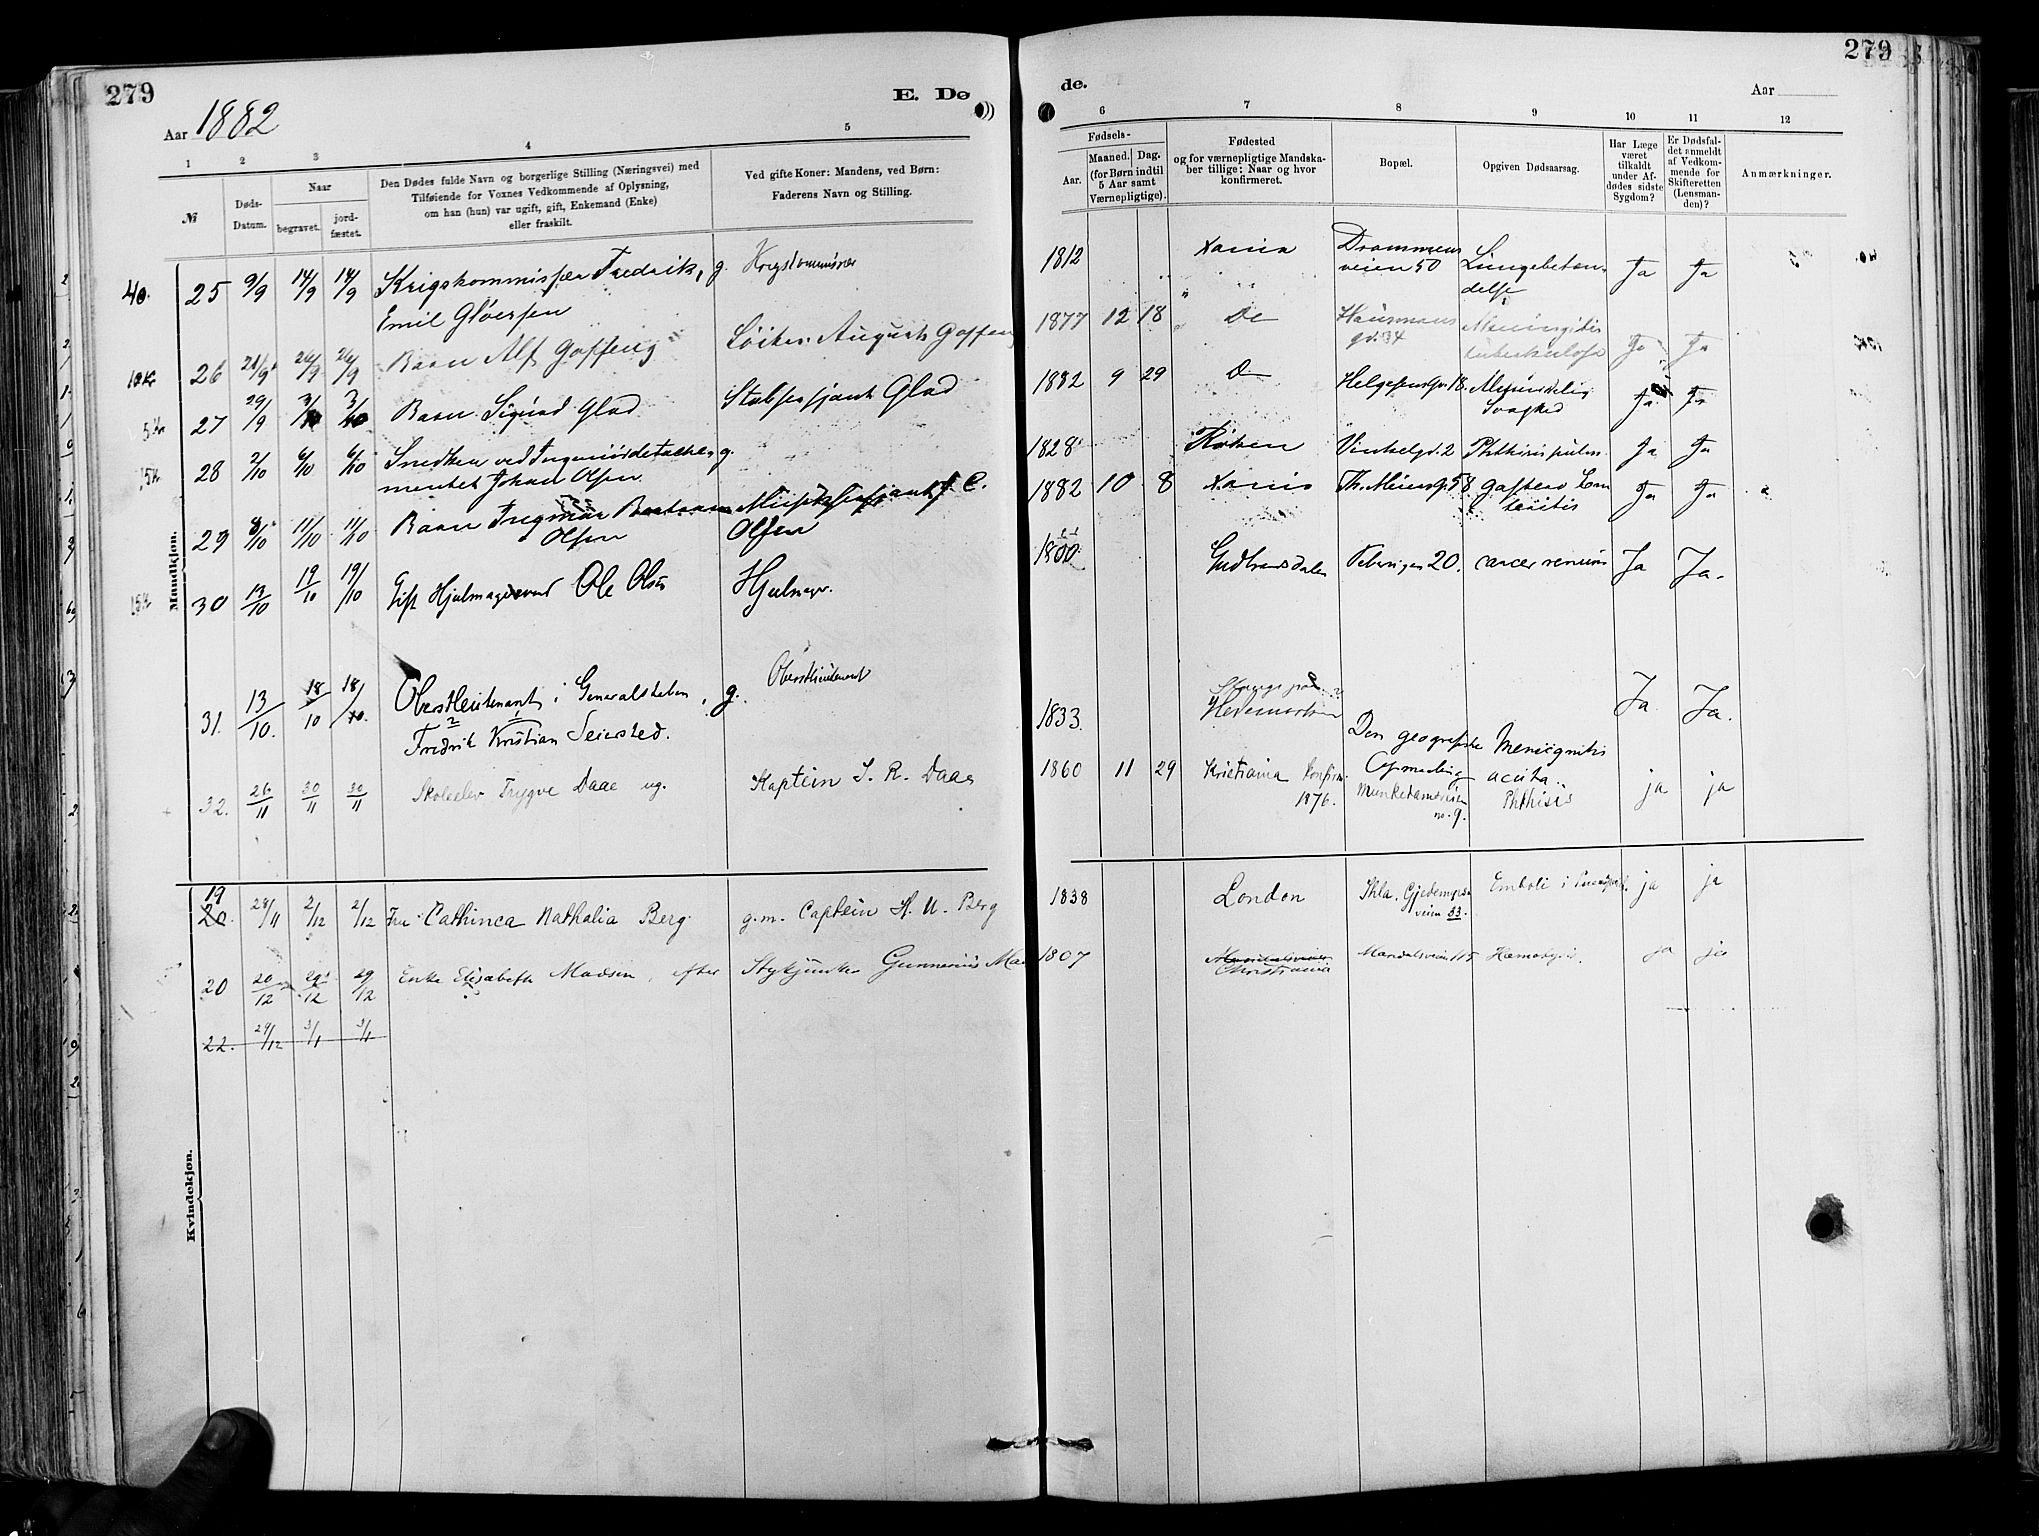 279
E. Dø
Aar 1882
1 2 3 4 5
№
Døds-Datum.
Naar
begravet.
jord-fæstet.
Den Dødes fulde Navn og borgerlige Stilling (Næringsvei) med
Tilføiende for Voxnes Vedkommende af Oplysning,
om han (hun) var ugift, gift, Enkemand (Enke)
eller fraskilt.
Ved gifte Koner: Mandens, ved Børn:
Faderens Navn og Stilling.
Mandkjøn.
40. 25 9/9 14/9 14/9 Krigskommissær Fredrik, g. Krigskommissær
Emil Gløersen
26 21/9 26/9 26/9 Barn Alf Gaffeng August Gaffeng
27 29/9 3/10 3/10 Barn Sigurd Glad Stabssersjant Glad
28 2/10 6/10 6/10 Snedker ved Ingeniördetache, g.
mentet Johan Olsen
29 8/10 11/10 11/10 Barn Ingmar
Olsen Olsen
30 13/10 19/10 19/10 Gift Hjulmagersvend Ole Olsen Hjulmgr.
31. 13/10. 18/10 18/10. Oberstleutenant i Generalstaben, g. Oberstleutenant
Fredrik Kristian Seiersted.
32. 26/11 30/11 30/11 Skoleelev Trygve Daae ug. Kaptein I. R. Daae
Kvindekjøn.
19
20 28/11 2/12 2/12 Fru Cathinca Nathalia Berg g.m. Captein H. N. Berg
20 20/12 29/12 29/12 Enke Elisabeth Madsen, efter Stykjunker Gunnerius Ma
22. 29/12 3/1 3/1
279
de.
Aar
6 7 8 9 10 11 12
Fødsels-
Aar.
Maaned. Dag.
(for Børn indtil
5 Aar samt
Værnepligtige).
Fødested
og for værnepligtige Mandska-
ber tillige: Naar og hvor
konfirmeret.
Bopæl.
Opgiven Dødsaarsag.
Har Læge
været
tilkaldt
under Af-
dødes sidste
Sygdom?
Er Dødsfal-
det anmeldt
af Vedkom-
mende for
Skifteretten
(Lensman-
den)?
Anmærkninger.
1812 Xania Drammens
veien 50 Lungebetæn-
delse Ja Ja
1877 12 18 Do Hausmans
gd. 34 Meningitis
tuberkulosa Ja Ja
1882 9 29 Do Helgesensgd. 18. Medfödelig
Svaghed Ja Ja
1828 Röken Vinkelgd. 2 Phthisis pulm. Ja Ja
1882 10 8 Xania Th. Meiersgd. 58. Gastero En
teritis Ja Ja
1800 Gudbrandsdalen 20. cancer renum Ja Ja.
1833. Hedemarken Ja. Ja.
Den geografiske
Opmaaling Meningitis
acuta.
1860 11 29 Kristiania Konfirm.
1876. Munkedamsveien
no. 9. Phthisis ja ja
1838 London Gjedemyrs
veien 33. Emboli i ja ja
1807 Christiania Maridalsveien 115 ja ja